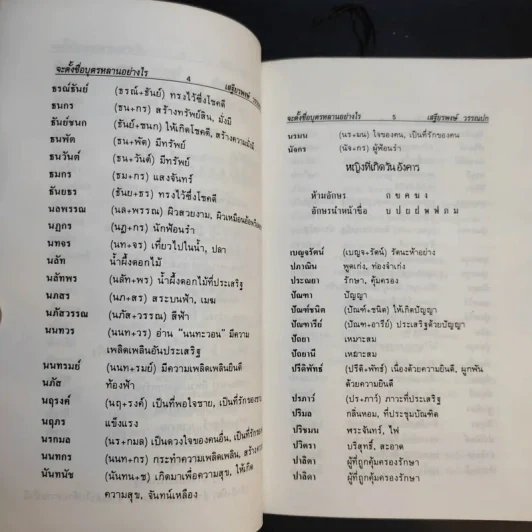 จะตั้งชื่อบุตรหลานอย่างไร 4 เสฐียรพงษ์ วรรณ
ธรณ์ธันย์ (ธรณ์+ธันย์) ทรงไว้ซึ่งโชคดี
ธนกร (ธน+กร) สร้างทรัพย์สิน, มั่งมี
ธันย์ชนก (ธันย์+ชนก) ให้เกิดโชคดี, สร้างความมั่งมี
ธนพัต (ธน+พัต) มีทรัพย์
ธนวันต์ (ธน+วันต์) มีทรัพย์
ธมกร (ธม+กร) แสงจันทร์
ธันยธร (ธันย+ธร) ทรงไว้ซึ่งโชคดี
นลพรรณ (นล+พรรณ) ผิวสวยงาม, ผิวเหมือนอ้อ
นฏกร (นฏ+กร) นักฟ้อนรำ
นทจร (นท+จร) เที่ยวไปในน้ำ, ปลา
นลัท น้ำผึ้งดอกไม้
นลัทพร (นลัท+พร) น้ำผึ้งดอกไม้ที่ประเสริฐ
นภสร (นภ+สร) สระบนฟ้า, เมฆ
นภัสวรรณ (นภัส+วรรณ) สีฟ้า
นนทวร (นนท+วร) อ่าน "นนทะวอน" มีความ
เพลิดเพลินอันประเสริฐ
นนทรมย์ (นนท+รมย์) มีความเพลิดเพลินยินดี
นภัส ท้องฟ้า
นฤรงค์ (นฤ+รงค์) เป็นที่พอใจชาย, เป็นที่รักของชาย
นฤภร แข็งแรง
นรกมล (นร+กมล) เป็นดวงใจของคนอื่น, เป็นที่รักของ
นนทกร (นนท+กร) กระทำความเพลิดเพลิน, เป็นที่รัก
นันทนัช (นันทน+ช) เกิดมาเพื่อความสุข, ให้เกิด
ความสุข, จันทน์เหลือง
จะตั้งชื่อบุตรหลานอย่างไร 5 เสฐียรพงษ์ วรรณปก
นรมน (นร+มน) ใจของคน, เป็นที่รักของคน
นัจกร (นัจ+กร) ผู้ฟ้อนรำ
หญิงที่เกิดวันอังคาร
ห้ามอักษร ก ข ค ฆ ง
อักษรนำหน้าชื่อ บ ป ผ ฝ พ ฟ ภ ม
เบญจรัตน์ (เบญจ+รัตน์) รัตนะห้าอย่าง
ปภาณิน พูดเก่ง, ท่องจำเก่ง
ประณยา รักษา, คุ้มครอง
ปัณฑา ปัญญา
ปัณฑ์ชนิต (ปัณฑ์+ชนิต) ให้เกิดปัญญา
ปัณฑารีย์ (ปัณฑ+อารีย์) ประเสริฐด้วยปัญญา
ปัถยา เหมาะสม
ปัถยานี เหมาะสม
ปรีดิพัทธ์ (ปรีดิ+พัทธ์) เนื่องด้วยความยินดี, ผูกพัน
ด้วยความยินดี
ปรภาว์ (ปร+ภาว์) ภาวะที่ประเสริฐ
ปริมล กลิ่นหอม, ที่ประชุมบัณฑิต
ปริชมน พระจันทร์, ไฟ
ปวิตรา บริสุทธิ์, สะอาด
ปาลิตา ผู้ที่ถูกคุ้มครองรักษา
ปาลิดา ผู้ที่ถูกคุ้มครองรักษา